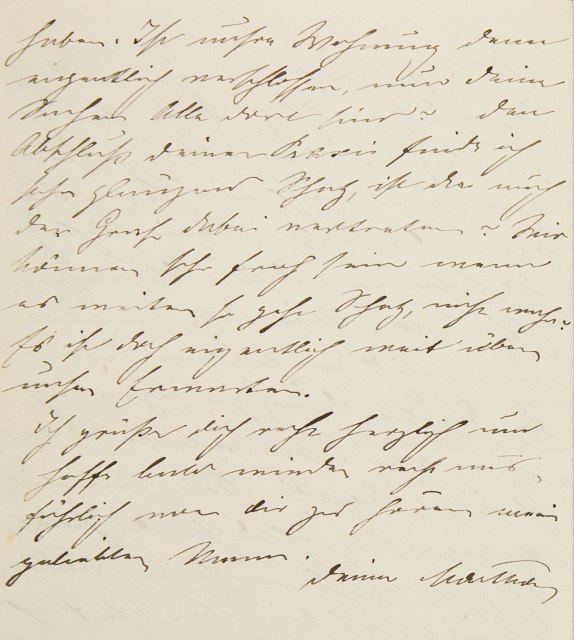 haben. Ist unsre Wohnung denn
eigentlich verschlossen, nun deine
Sachen alle dort sind? Den
Abschluß deiner Praxis finde ich
sehr glänzend Schatz, ist denn auch
der Graf dabei vertreten? Wir
können sehr froh sein wenn
es weiter so geht Schatz, nicht wahr?
Es ist doch eigentlich weit über
unser Erwarten.
Ich grüße dich recht herzlich und
hoffe bald wieder recht aus-
führlich von dir zu hören mein
geliebter Mann.
deine Martha